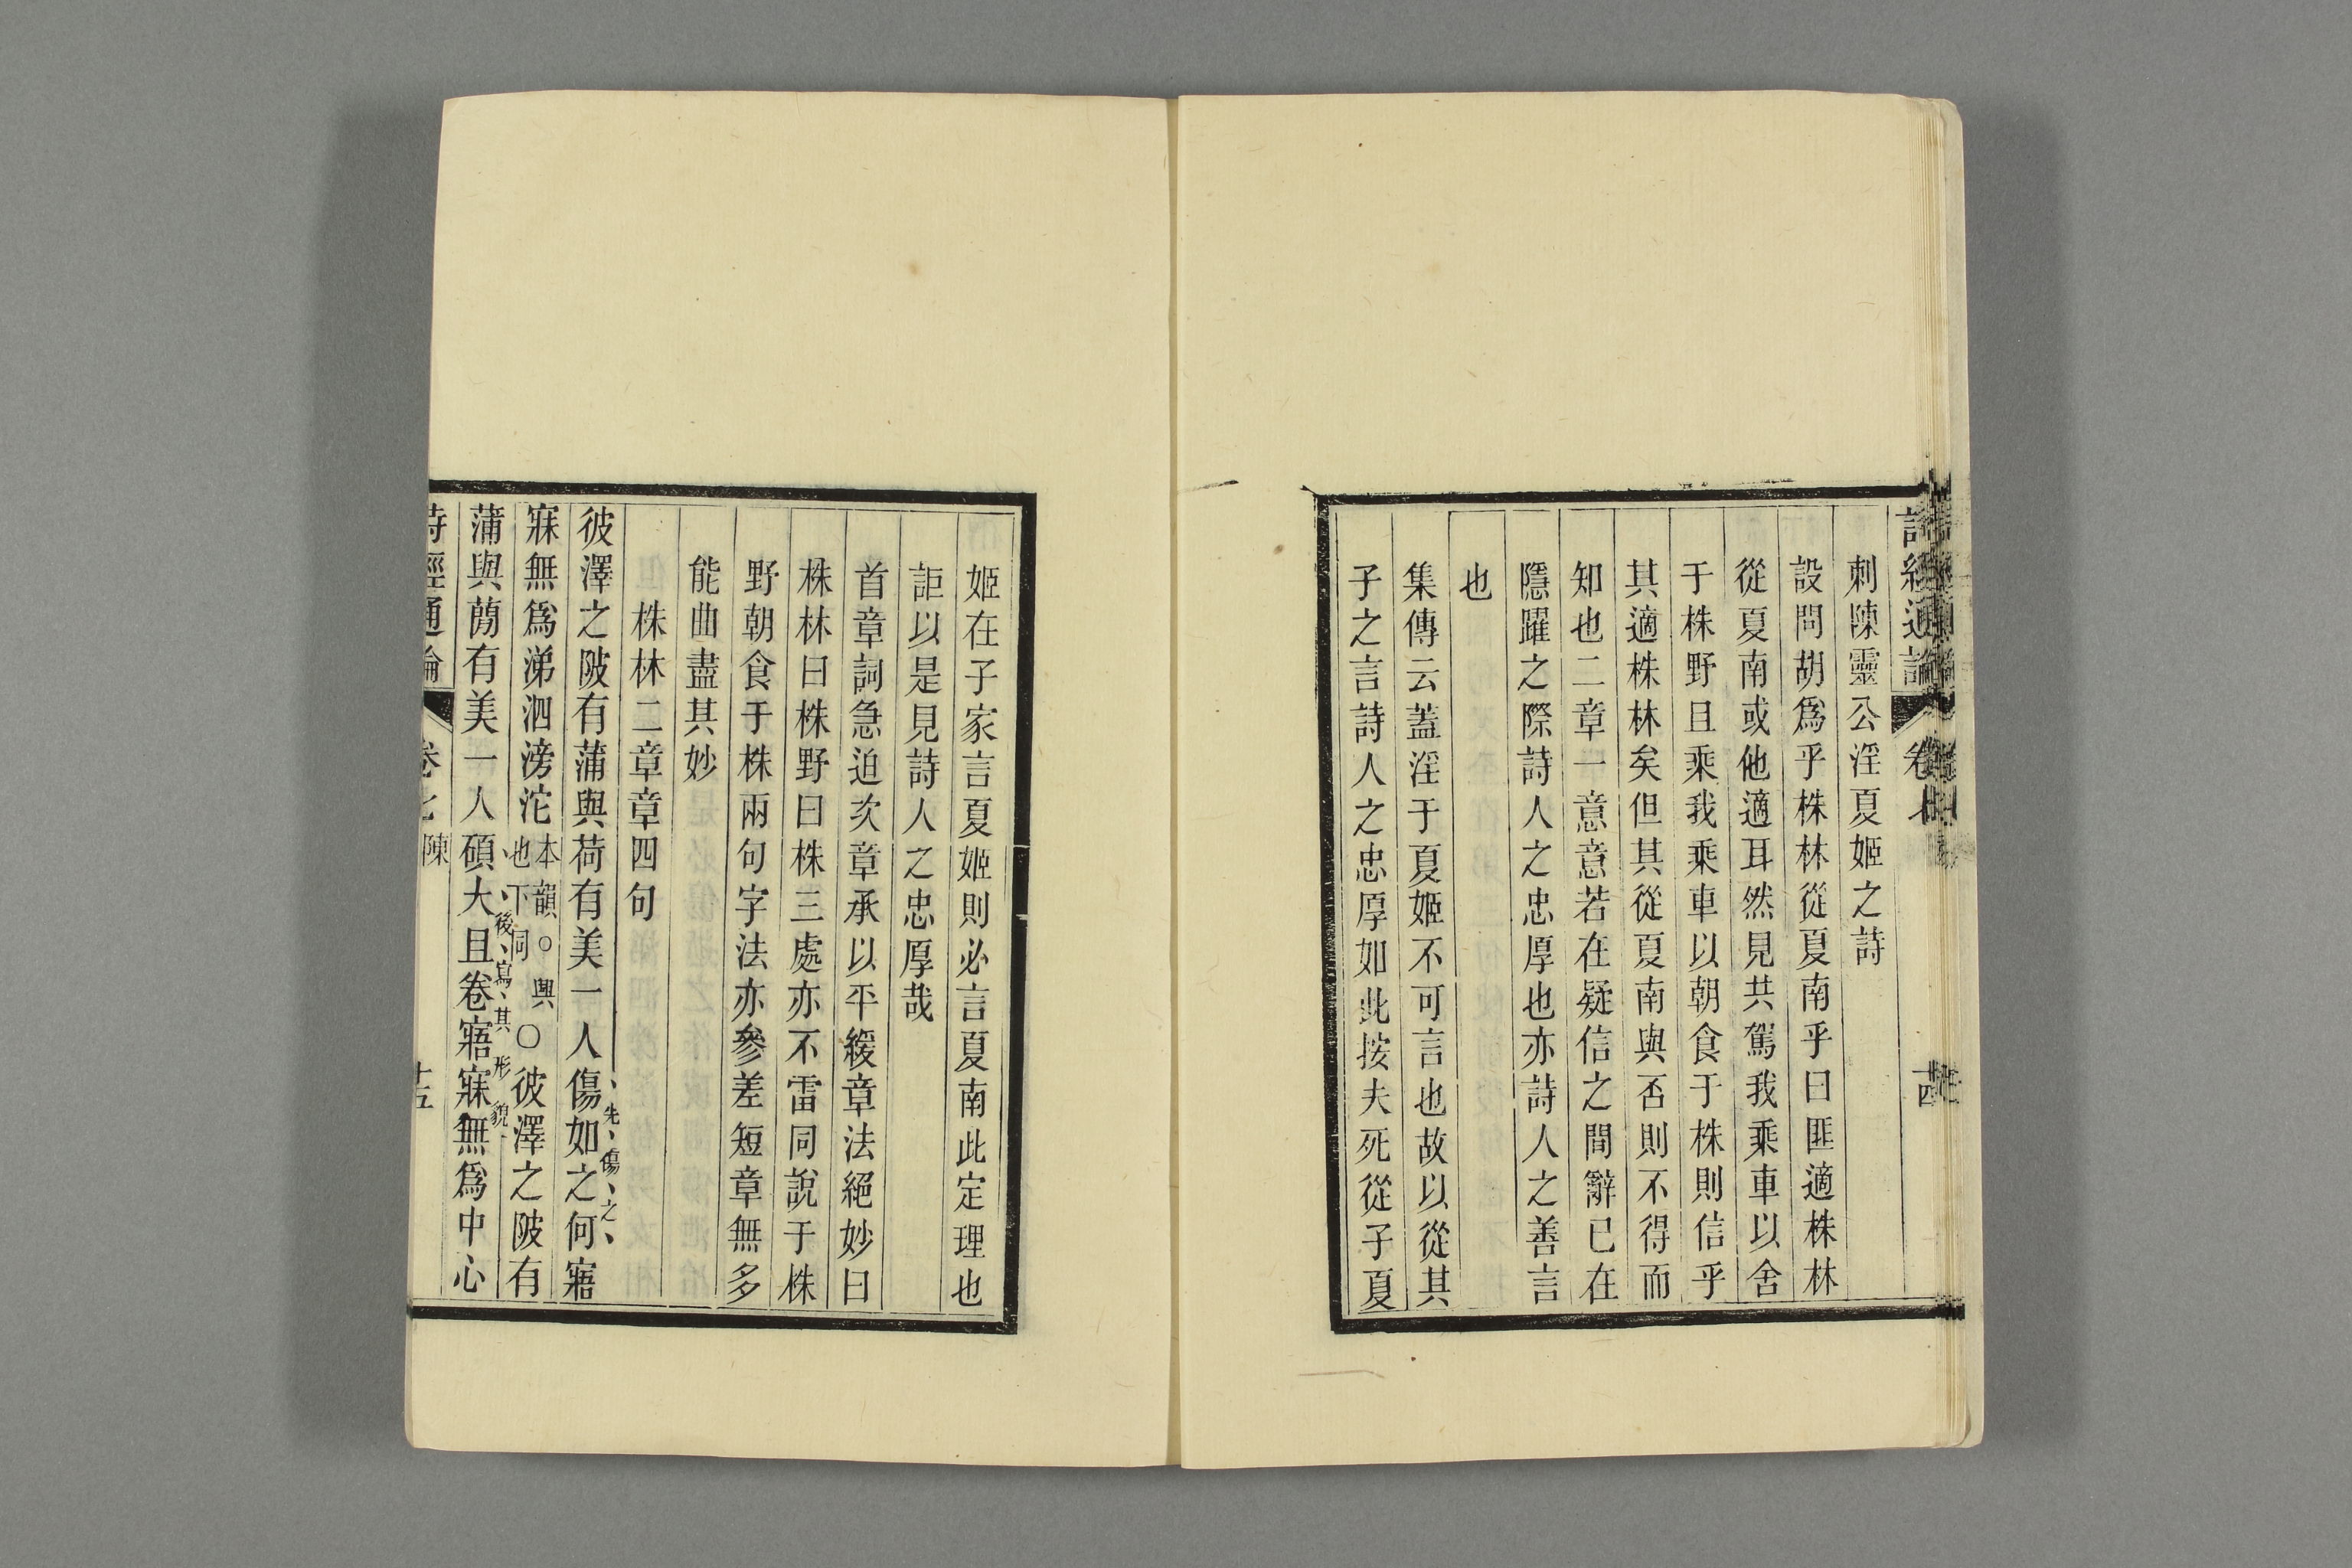 刺陳靈公淫夏姬之詩
設問胡爲乎株林從夏南乎曰匪適株林
從夏南或他適耳然見共駕我乘車以舍
于株野且乘我乘車以朝食于株則信乎
其適株林矣但其從夏南與否則不得而
知也二章一意意若在疑信之間辭已在
隱躍之際詩人之忠厚也亦詩人之善言
也
集傳云蓋淫于夏姬不可言也故以從其
子之言詩人之忠厚如此按夫死從子夏
姬在子家言夏姬則必言夏南此定理也
詎以是見詩人之忠厚哉
首章詞急迫次章承以平緩章法絕妙曰
株林曰株野曰株三處亦不雷同說于株
野朝食于株兩句字法亦參差短章無多
能曲盡其妙
株林二章章四句
彼澤之陂有蒲與荷有美一人傷如之何寤
先傷之
寐無爲涕泗滂沱本韻○興也下同○彼澤之陂有
蒲與蕑有美一人碩大且卷寤寐無爲中心
後寫其形貌
詩經通論 卷七 陳 十五